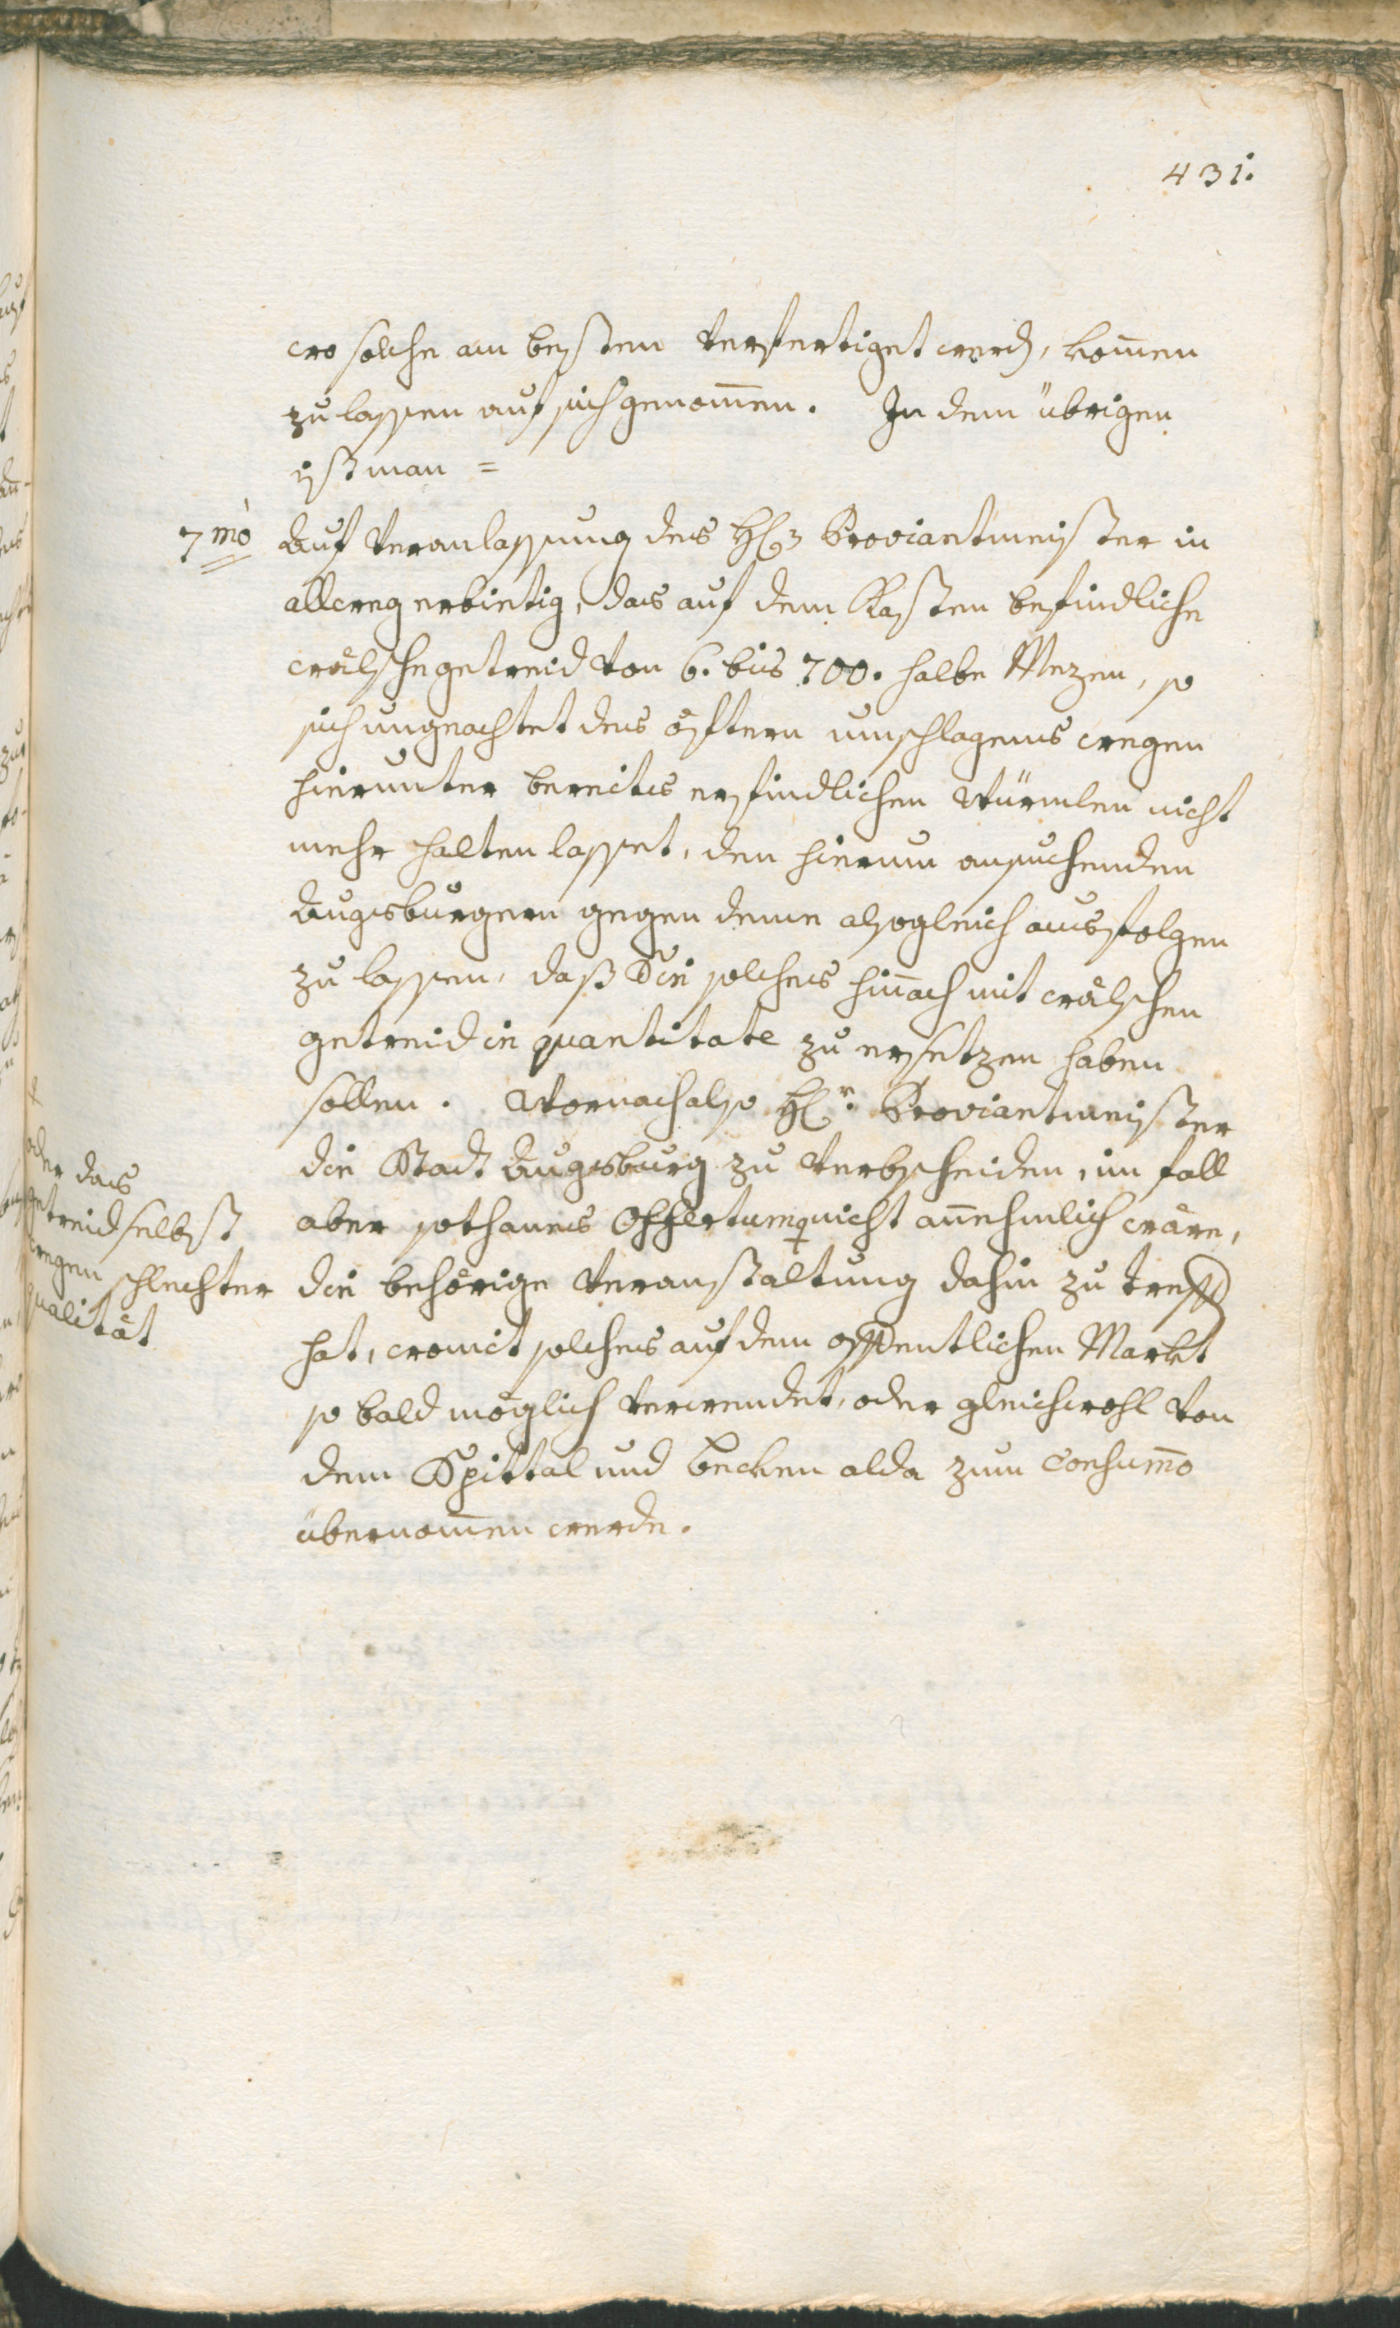 431.
wo solche am besten verfertiget werd, kom̅en
zu lassen auf sich genom̅en. In dem übrigen
ist man =
7mo Auf veranlassung des H. Proviantmeister in
allweg erbietig, das auf dem Kasten befindliche
wälsche getreid von 6. bis 700. halbe Mezen, so
sich ungeachtet des öftern umschlagens wegen
hierunter bereits erfindlichen Würmlen nicht
mehr halten lasset, den hierum ansuchenden
Augsburgern gegen deme alsogleich ausfolgen
zu lassen, daß Sie solches hin̅ach mit wälschen
getreid in quantitate zu ersetzen haben
sollen. Wornach also H.r Proviantmeister
die Stadt Augsburg zu verbscheiden, im fall
aber sothanes Offertum nicht an̅ehmlich wäre,
die behörige Veranstaltung dahin zu treff
hat, womit solches auf dem offentlichen Markt
so bald möglich verwendet, oder gleichwohl von
dem Spittal und becken alda zum Consum̅o
übernom̅en werde.
oder das
getreid selbst
wegen schlechter
qualität